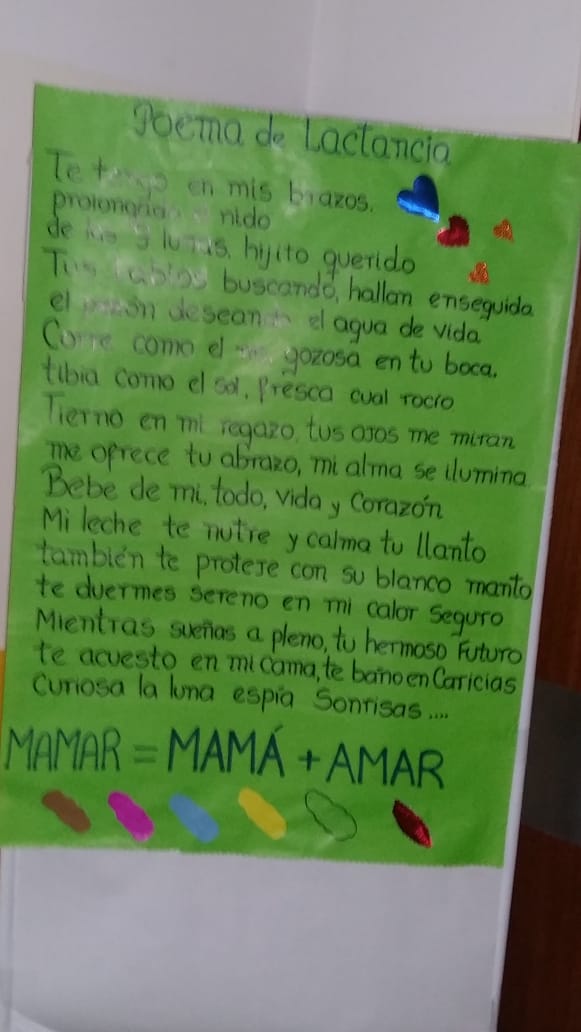 Poema de Lactancia
Te tengo en mis brazos.
prolongado nido
de las 9 lunas, hijito querido
Tus labios buscando, hallan enseguida
el pezón deseando el agua de vida
Corre como el gozosa en tu boca,
tibia como el sol, fresca cual rocío
Tierno en mi regazo, tus ojos me miran
me ofrece tu abrazo, mi alma se ilumina
Bebe de mi, todo, vida y Corazón
Mi leche te nutre y calma tu llanto
también te proteje con su blanco manto
te duermes sereno en mi calor seguro
Mientras sueñas a pleno, tu hermoso Futuro
te acuesto en mi cama, te baño en Caricias
Curiosa la luna espía Sonrisas....
MAMAR = MAMÁ + AMAR